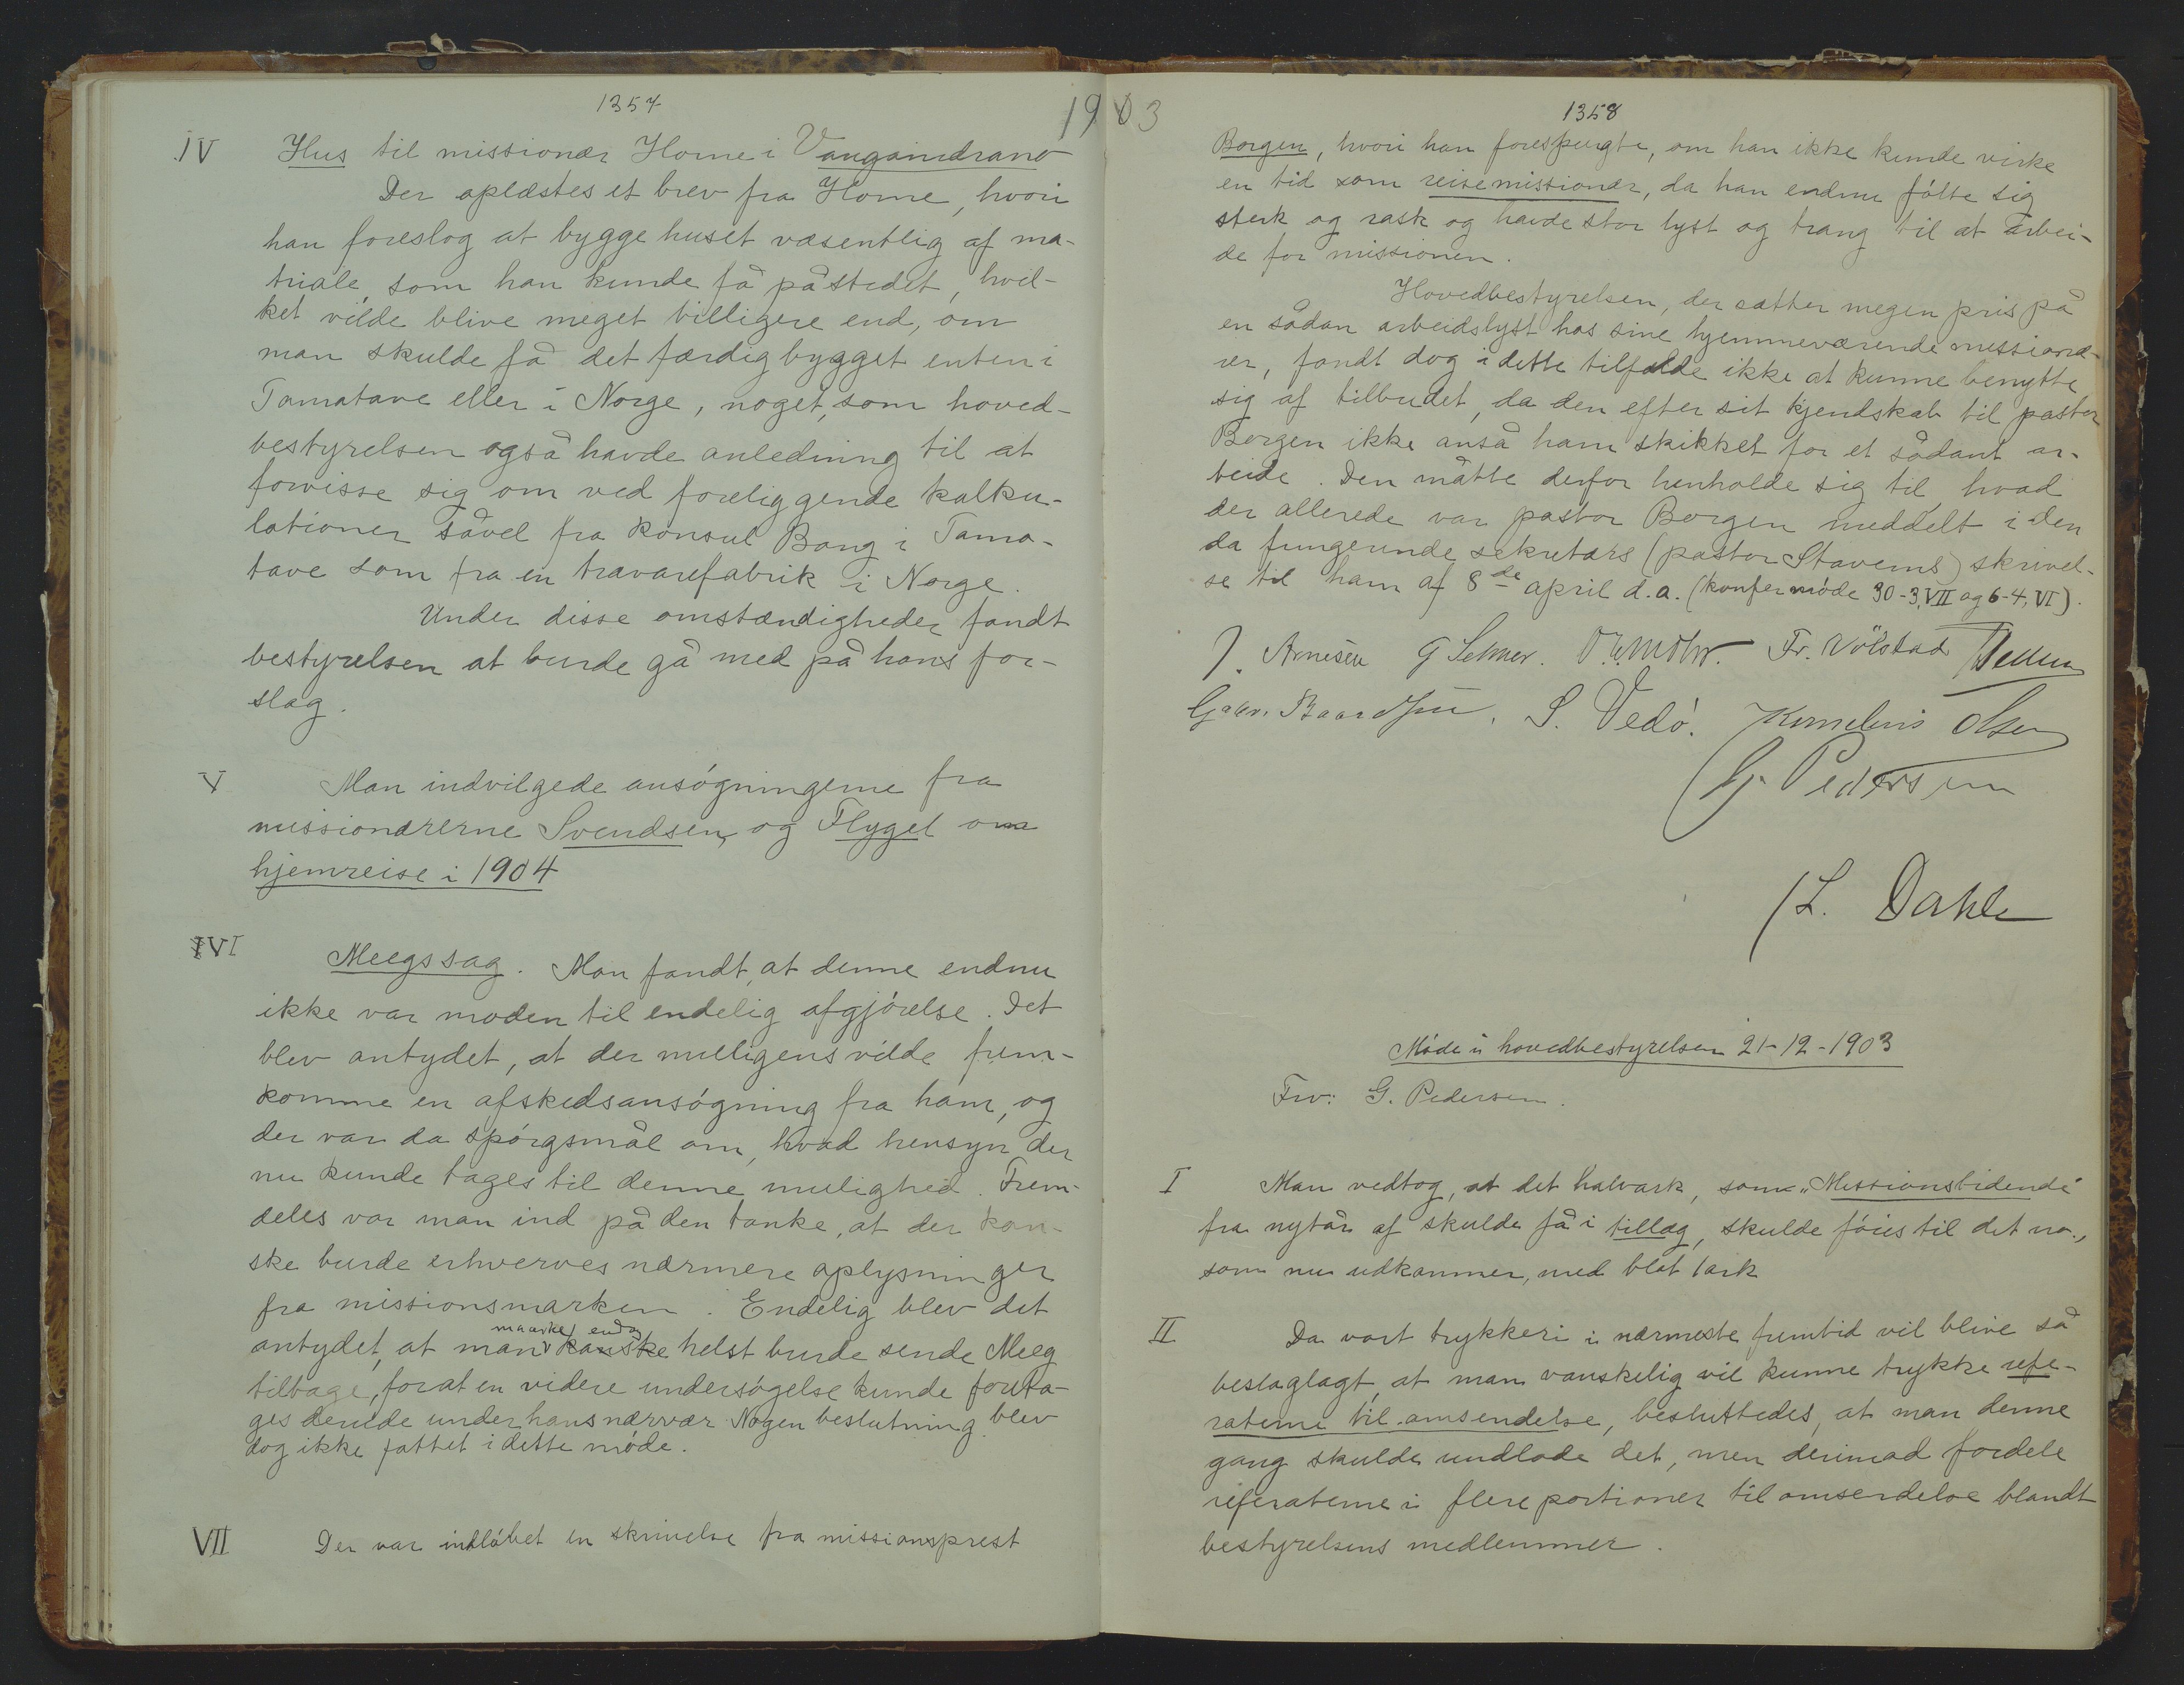 1357
1903
IV Hus til missionær Horne i Vangaindrano
Der oplæstes et brev fra Horne, hvori
han foreslog at bygge huset væsentlig af ma-
triale, som han kunde få på stedet, hvil-
ket vilde blive meget billigere end, om
man skulde få det færdigbygget enten i
Tamatave eller i Norge, noget, som hoved-
bestyrelsen også havde anledning til at
forvisse sig om ved foreliggende kalku-
lationer såvel fra konsul Bang i Tama-
tave som fra en trævarefabrik i Norge.
Under disse omstændigheder fandt
bestyrelsen at burde gå med på hans for-
slag.
V Man indvilgede ansøgningerne fra
missionærerne Svendsen og Flyget om
hjemreise i 1904
VI Meegs sag. Man fandt, at denne endnu
ikke var moden til endelig afgjørelse. Det
blev antydet, at der muligens vilde frem-
komme en afskedsansøgning fra ham, og
der var da spørgsmål om, hvad hensyn der
nu kunde tages til denne mulighed. Frem-
deles var man ind på den tanke, at der kan-
ske burde erhverves nærmere oplysninger
fra missionsmarken. Endelig blev det
maaske endog
antydet, at man kanske helst burde sende Meeg
tilbage, forat en videre undersøgelse kunde foreta-
ges derude under hans nærvær. Nogen beslutning blev
dog ikke fattet i dette møde.
VII Der var indløbet en skrivelse fra missionsprest
1358
Borgen, hvori han forespurgte, om han ikke kunde virke
en tid som reisemissionær, da han endnu følte sig
sterk og rask og havde stor lyst og trang til at arbei-
de for missionen.
Hovedbestyrelsen, der sætter megen pris på
en sådan arbeidslyst hos sine hjemmeværende missionæ-
rer, fandt dog i dette tilfælde ikke at kunne benytte
sig af tilbudet, da den efter sit kjendskab til pastor
Borgen ikke anså ham skikket for et sådant ar-
beide. Den måtte derfor henholde sig til, hvad
der allerede var pastor Borgen meddelt i den
da fungerende sekretærs (pastor Stavems) skrivel-
se til ham af 8de april d.a. (konfer møde 30-3, VII og 6-4, VI).
J. Arnesen G Selmer. Fr. Völstad
Gabr. Baardsen. S. Vedø. Kornelius Olsen
G. Pedersen
/L. Dahle
Møde i hovedbestyrelsen 21-12-1903
Frv: G. Pedersen.
I Man vedtog, at det halvark, som "Missionstidende"
fra nytår af skulde få i tillæg, skulde føies til det no.,
som nu udkommer, med blot 1 ark
II Da vort trykkeri i nærmeste fremtid vil blive så
beslaglagt, at man vanskelig vil kunne trykke refe-
raterne til omsendelse, besluttedes, at man denne
gang skulde undlade det, men derimod fordele
referaterne i flere portioner til omsendelse blandt
bestyrelsens medlemmer.